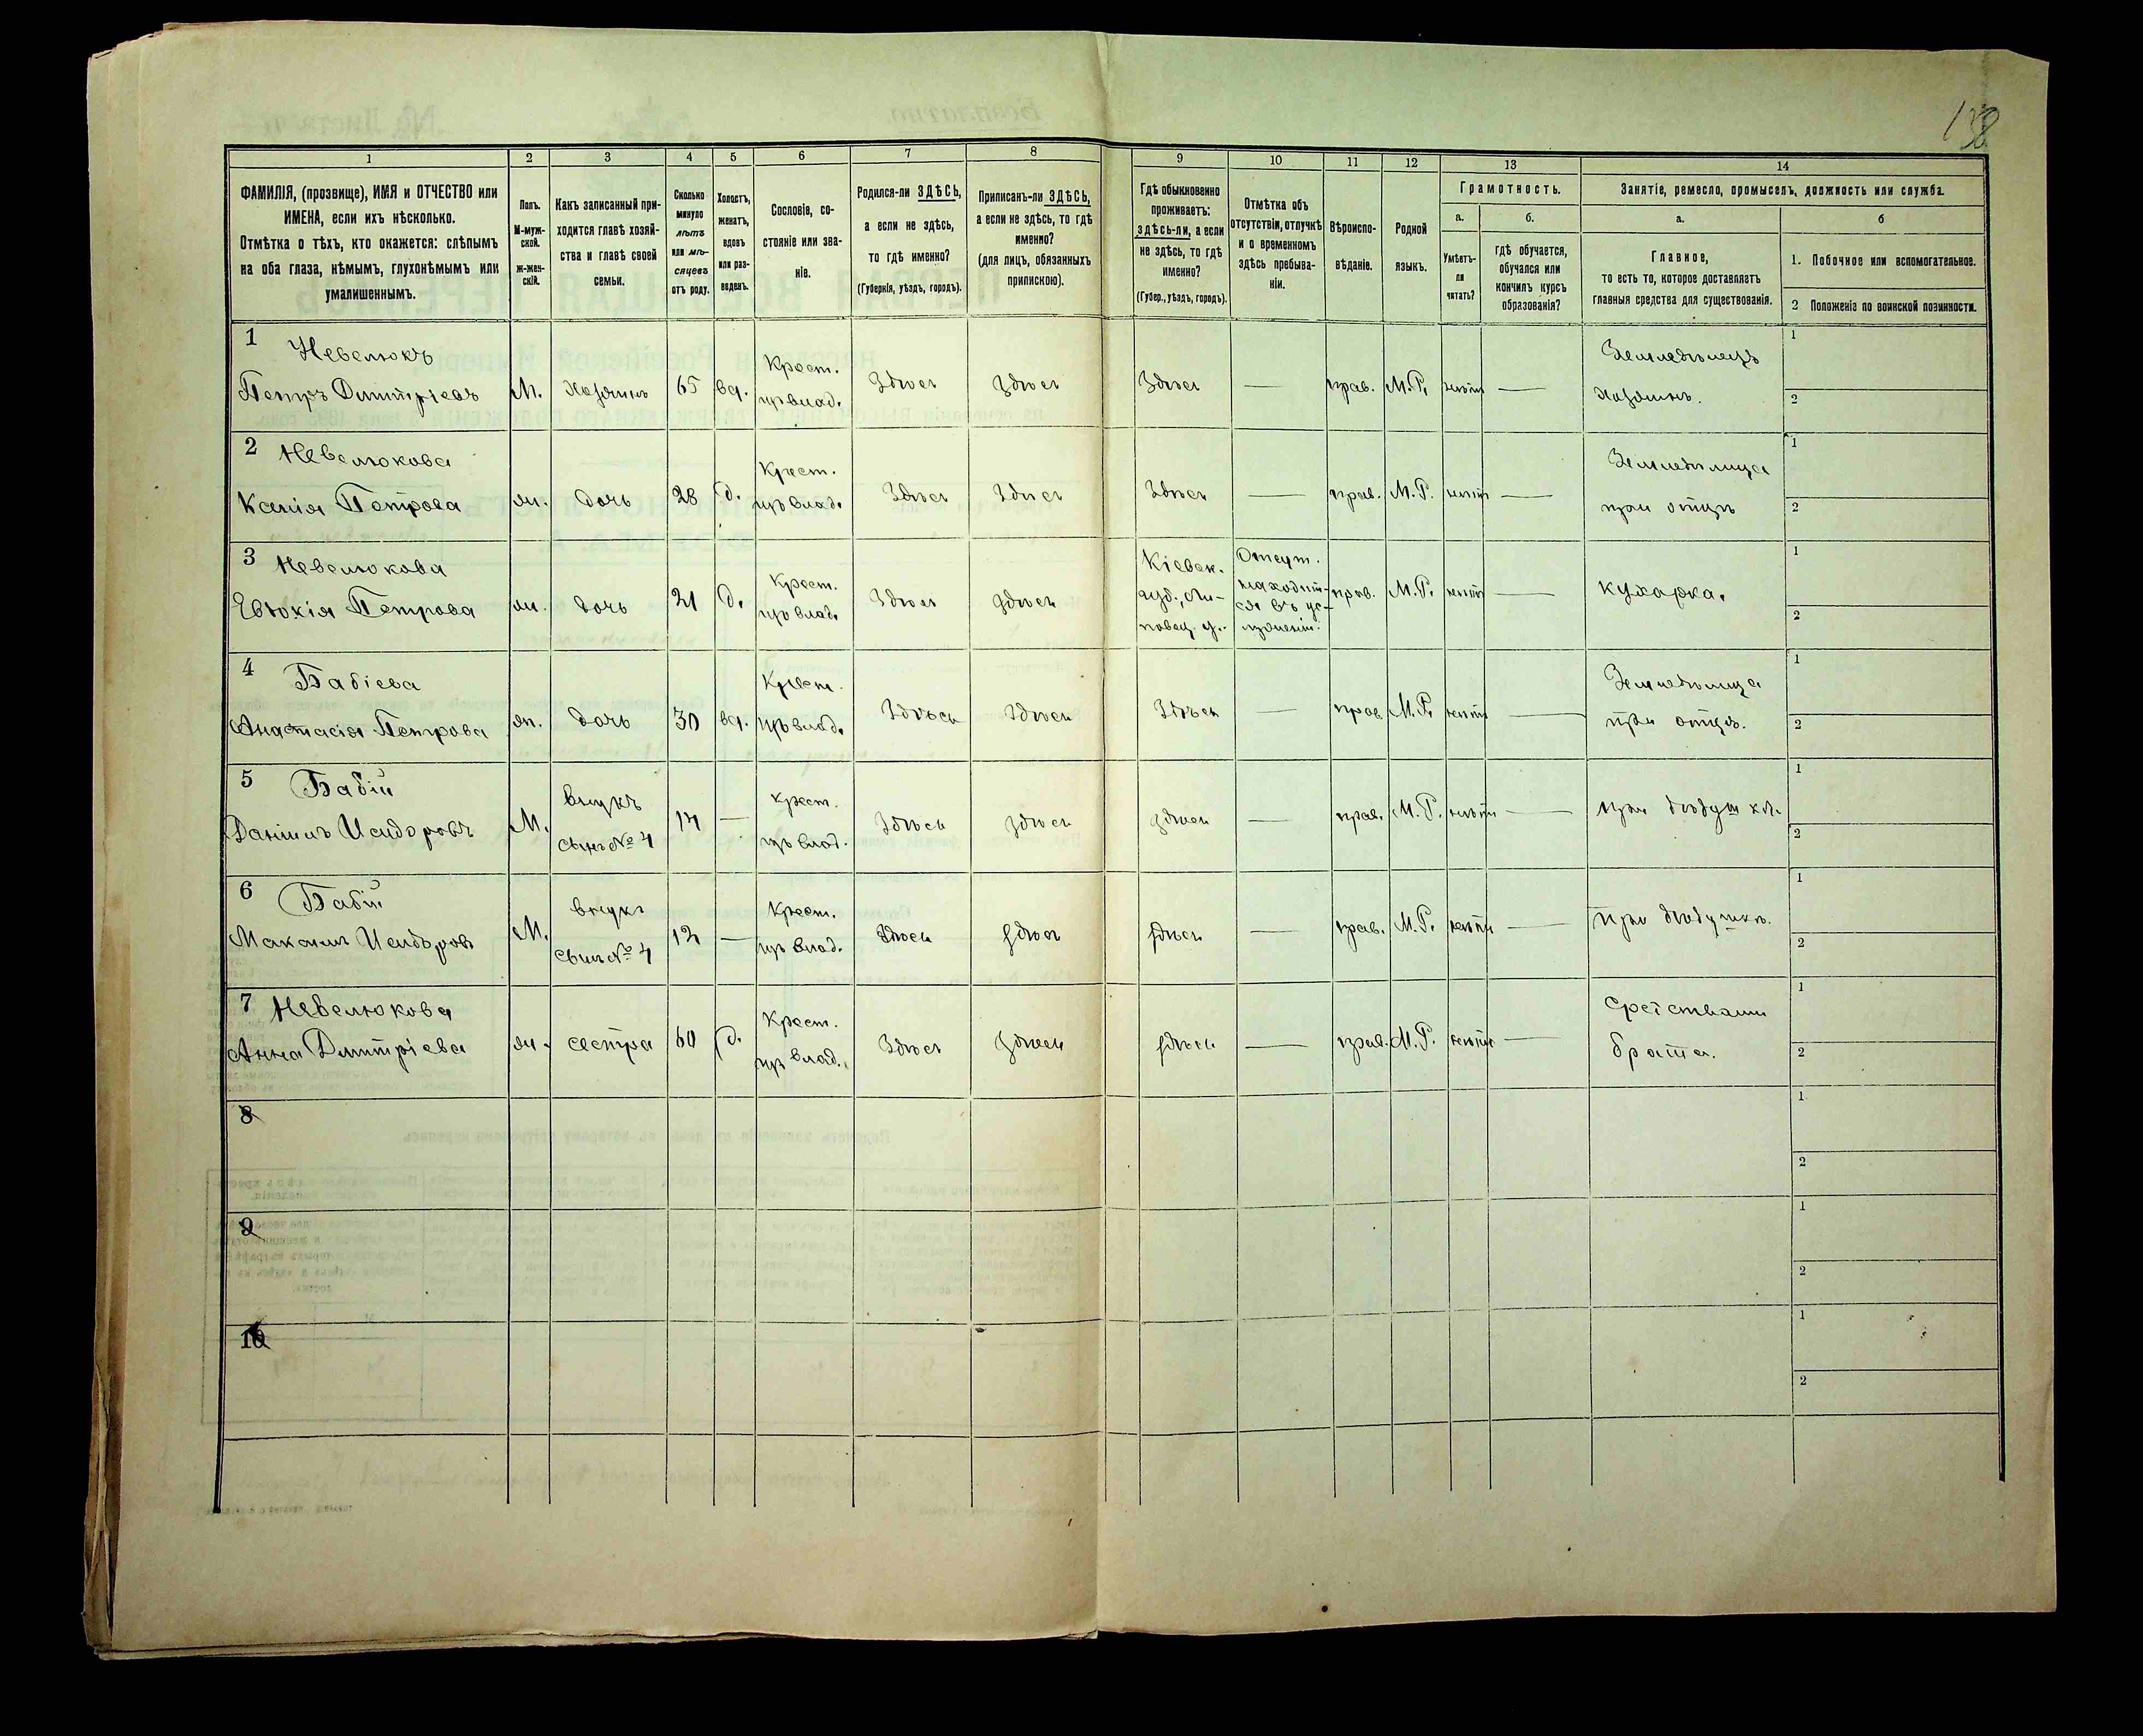 138
1 2 3 4 5 6 7 8 9 10 11 12 13 14
ФАМИЛІЯ, (прозвище), ИМЯ и ОТЧЕСТВО или
ИМЕНА, если ихъ нѣсколько.
Отмѣтка о тѣхъ, кто окажется: слѣпымъ
на оба глаза, нѣмымъ, глухонѣмымъ или
умалишеннымъ.
Полъ.
М-муж-
ской.
ж-жен-
скій.
Какъ записанный при-
ходится главѣ хозяй-
ства и главѣ своей
семьи.
Сколько
минуло
лѣтъ
или мѣ-
сяцевъ
отъ роду.
Холостъ,
женатъ,
вдовъ
или раз-
веденъ.
Сословіе, со-
стояніе или зва-
ніе.
Родился-ли ЗДѢСЬ,
а если не здѣсь,
то гдѣ именно?
(Губернія, уѣздъ, городъ).
Приписанъ-ли ЗДѢСЬ,
а если не здѣсь, то гдѣ
именно?
(для лицъ, обязанныхъ
припискою).
Гдѣ обыкновенно
проживаетъ:
здѣсь-ли, а если
не здѣсь, то гдѣ
именно?
(Губер., уѣздъ, городъ).
Отмѣтка объ
отсутствіи, отлучкѣ
и о временномъ
здѣсь пребыва-
ніи.
Вѣроиспо-
вѣданіе.
Родной
языкъ.
Грамотность.
а. б.
Умѣетъ-
ли
читать?
гдѣ обучается,
обучался или
кончилъ курсъ
образованія?
Занятіе, ремесло, промыселъ, должность или служба.
а. б
Главное,
то есть то, которое доставляетъ
главныя средства для существованія.
1. Побочное или вспомогательное.
2 Положеніе по воинской повинности.
1 Невелюкъ
Петръ Димитріевъ М. Хозяинъ 65 вд. Крест. изъ влад. Здѣсь Здѣсь Здѣсь — прав. М.Р. нетъ — Земледѣлецъ хозяинъ. 1 2
2 Невелюкова
Ксенія Петрова ж. дочь 28 д. Крест. изъ влад. Здѣсь Здѣсь Здѣсь — прав. М.Р. нетъ — Земледѣлица при отцѣ 1 2
3 Невелюкова
Евдокія Петрова ж. дочь 21 д. Крест. изъ влад. Здѣсь Здѣсь Кіевск. губ., Ли-повец. у. Отсут. находит-ся въ ус-луженіи. прав. М.Р. нетъ — кухарка. 1 2
4 Бабіева
Анастасія Петрова ж. дочь 30 вд. Крест. изъ влад. Здѣсь Здѣсь Здѣсь — прав. М.Р. нетъ — Земледѣлица при отцѣ. 1 2
5 Бабій
Даніилъ Исидоровъ М. внукъ сынъ № 4 14 — крест. изъ влад. Здѣсь Здѣсь Здѣсь — прав. М.Р. нетъ — при дѣдушкѣ. 1 2
6 Бабій
Максимъ Исидоровъ М. внукъ сынъ № 4 12 — Крест. изъ влад. Здѣсь Здѣсь Здѣсь — прав. М.Р. нетъ — при дѣдушкѣ. 1 2
7 Невелюкова
Анна Димитріева ж. сестра 60 д. Крест. изъ влад. Здѣсь Здѣсь Здѣсь — прав. М.Р. нетъ — Средствами брата. 1 2
8 1 2
9 1 2
10 1 2